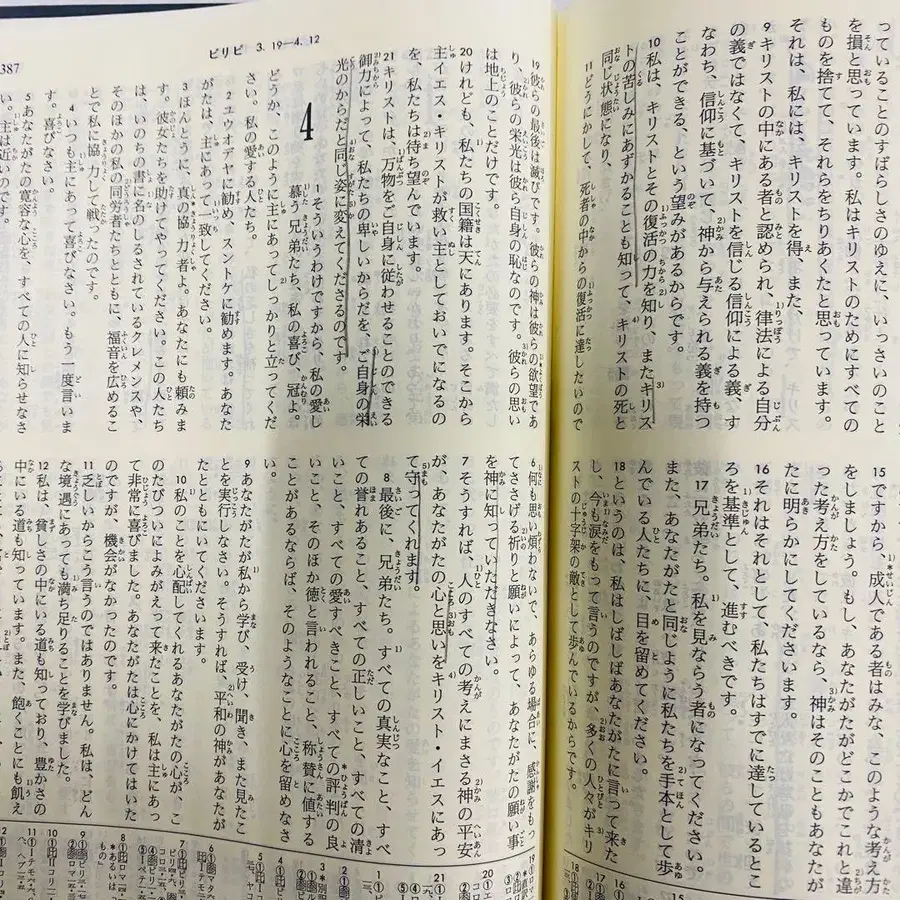 っていることのすばらしさのゆえに、いっさいのこと
を損と思っています。私はキリストのためにすべての
ものを捨てて、それらをちりあくたと思っています。
それは、私には、キリストを得、また、
9 キリストの中にある者と認められ、律法による自分
の義ではなくて、キリストを信じる信仰による義、す
なわち、信仰に基づいて、神から与えられる義を持つ
ことができる、という望みがあるからです。
10 私は、キリストとその復活の力を知り、またキリス
トの苦しみにあずかることも知って、キリストの死と
同じ状態になり、
11 どうにかして、死者の中からの復活に達したいので
15 ですから、成人である者はみな、このような考え方
をしましょう。もし、あなたがたがどこかでこれと違
った考え方をしているなら、神はそのこともあなたが
たに明らかにしてくださいます。
16 それはそれとして、私たちはすでに達しているとこ
ろを基準として、進むべきです。
17 兄弟たち。私を見ならう者になってください。
また、あなたがたと同じように私たちを手本として歩
んでいる人たちに、目を留めてください。
18 というのは、私はしばしばあなたがたに言って来た
し、今も涙をもって言うのですが、多くの人々がキリ
ストの十字架の敵として歩んでいるからです。
ピリピ 3. 19—4. 12
387
19 彼らの最後は滅びです。彼らの神は彼らの欲望であ
り、彼らの栄光は彼ら自身の恥なのです。彼らの思い
は地上のことだけです。
20 けれども、私たちの国籍は天にあります。そこから
主イエス・キリストが救い主としておいでになるの
を、私たちは待ち望んでいます。
21 キリストは、万物をご自身に従わせることのできる
御力によって、私たちの卑しいからだを、ご自身の栄
光のからだと同じ姿に変えてくださるのです。
4
1 そういうわけですから、私の愛し
慕う兄弟たち、私の喜び、冠よ。
どうか、このように主にあってしっかりと立ってくだ
さい。私の愛する人たち。
2 ユウオデヤに勧め、スントケに勧めます。あなた
がたは、主にあって一致してください。
3 ほんとうに、真の協力者よ。あなたにも頼みま
す。彼女たちを助けてやってください。この人たち
は、いのちの書に名のしるされているクレメンスや、
そのほかの私の同労者たちとともに、福音を広めるこ
とで私に協力して戦ったのです。
4 いつも主にあって喜びなさい。もう一度言いま
す。喜びなさい。
5 あなたがたの寛容な心を、すべての人に知らせなさ
い。主は近いのです。
6 何も思い煩わないで、あらゆる場合に、感謝をもっ
てささげる祈りと願いによって、あなたがたの願い事
を神に知っていただきなさい。
7 そうすれば、人のすべての考えにまさる神の平安
が、あなたがたの心と思いをキリスト・イエスにあっ
て守ってくれます。
8 最後に、兄弟たち。すべての真実なこと、すべ
ての誉れあること、すべての正しいこと、すべての清
いこと、すべての愛すべきこと、すべての評判の良
いこと、そのほか徳と言われること、称賛に値する
ことがあるならば、そのようなことに心を留めなさ
9 あなたがたが私から学び、受け、聞き、また見たこ
とを実行しなさい。そうすれば、平和の神があなたが
たとともにいてくださいます。
10 私のことを心配してくれるあなたがたの心が、こ
のたびついによみがえって来たことを、私は主にあっ
て非常に喜びました。あなたがたは心にかけてはいた
のですが、機会がなかったのです。
11 乏しいからこう言うのではありません。私は、どん
な境遇にあっても満ち足りることを学びました。
12 私は、貧しさの中にいる道も知っており、豊かさの
中にいる道も知っています。また、飽くことにも飢え